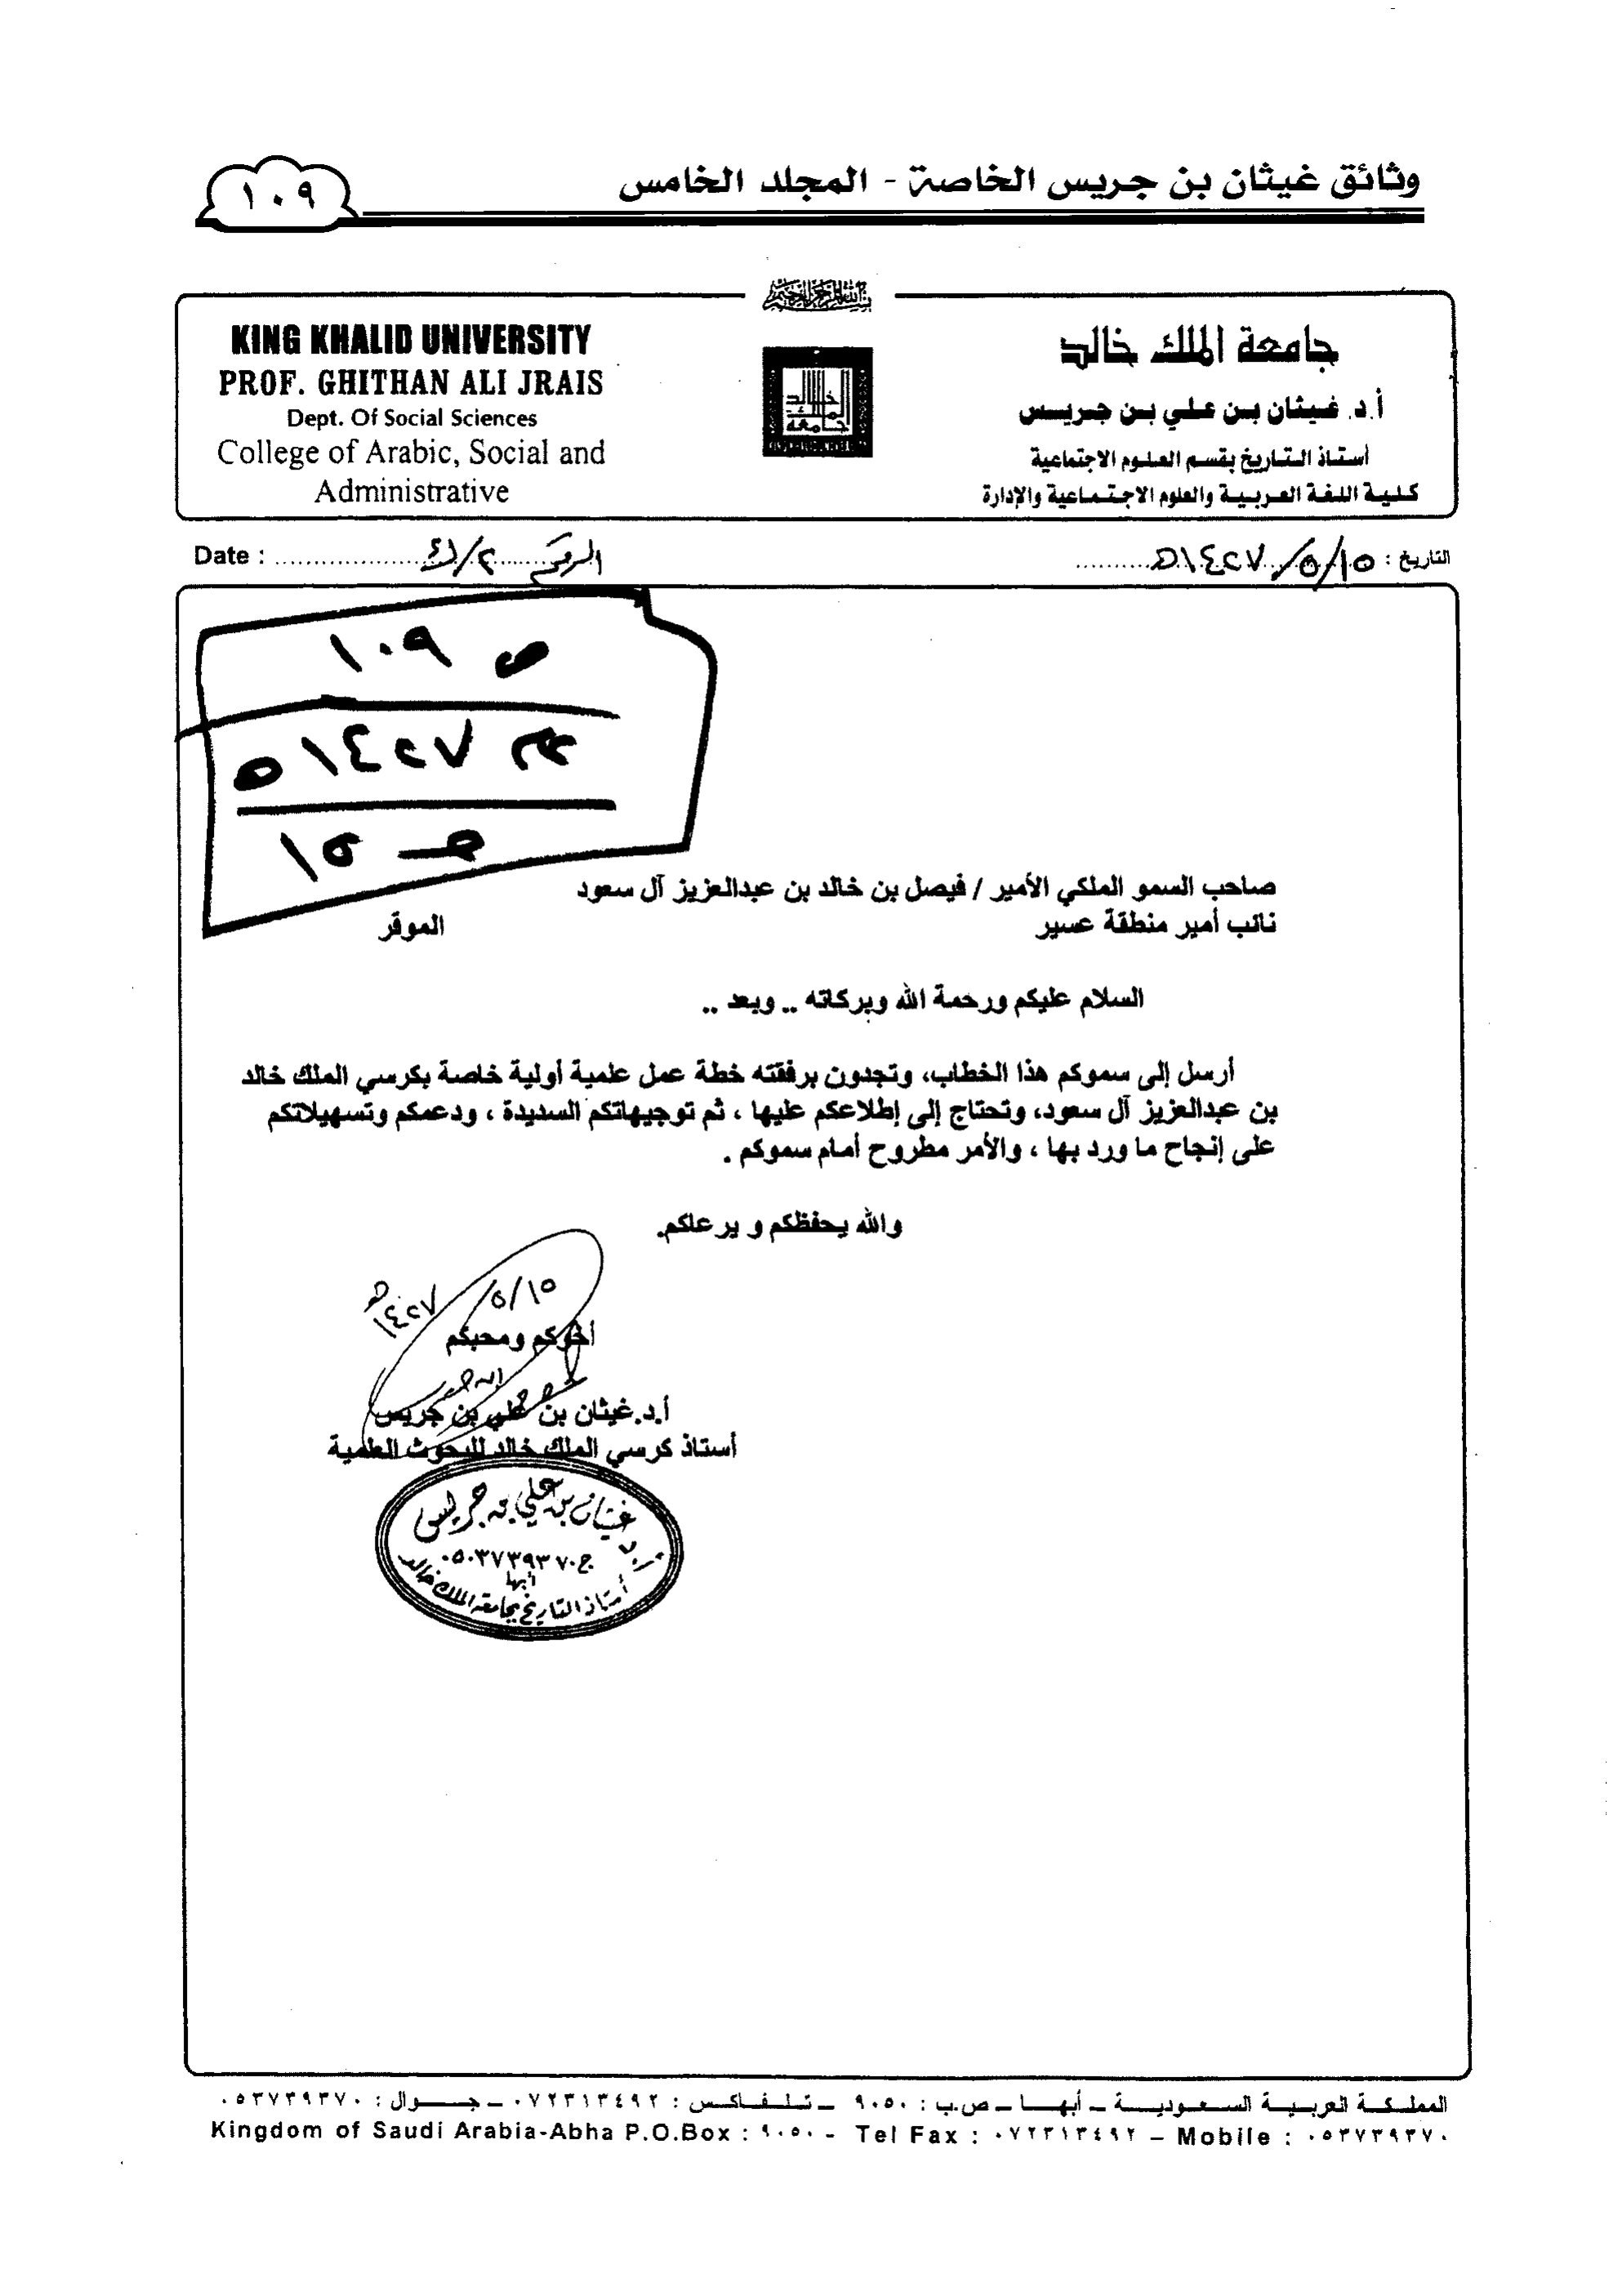 وثائق غيثان بن جريس الخاصة - المجلد الخامس
١٠٩
بسم الله الرحمن الرحيم
جامعة الملك خالد
أ.د. غيثان بن علي بن جريس
أستاذ التاريخ بقسم العلوم الاجتماعية
كلية اللغة العربية والعلوم الاجتماعية والإدارة
KING KHALID UNIVERSITY
PROF. GHITHAN ALI JRAIS
Dept. Of Social Sciences
College of Arabic, Social and
Administrative
التاريخ : ١٥/٥/١٤٢٧هـ
Date :
الرقم
ص ١٠٩
١٤٢٧
١٥
صاحب السمو الملكي الأمير / فيصل بن خالد بن عبدالعزيز آل سعود
نائب أمير منطقة عسير الموقر
السلام عليكم ورحمة الله وبركاته .. وبعد ..
أرسل إلى سموكم هذا الخطاب، وتجدون برفقته خطة عمل علمية أولية خاصة بكرسي الملك خالد
بن عبدالعزيز آل سعود، وتحتاج إلى إطلاعكم عليها ، ثم توجيهاتكم السديدة ، ودعمكم وتسهيلاتكم
على إنجاح ما ورد بها ، والأمر مطروح أمام سموكم .
والله يحفظكم و يرعاكم.
١٥/٥/
١٤٢٧هـ
أخوكم ومحبكم
أ.د.غيثان بن علي بن جريس
أستاذ كرسي الملك خالد للبحوث العلمية
أ.د غيثان بن علي بن جريس
ج٠٥٠٣٧٣٩٣٧٠
أبها
أستاذ التاريخ بجامعة الملك خالد
المملكة العربية السعودية – أبها – ص.ب : ٩٠٥٠ – تلفاكس : ٠٧٢٣١٣٤٩٢ – جوال : ٠٥٣٧٣٩٣٧٠
Kingdom of Saudi Arabia-Abha P.O.Box : ٩٠٥٠ - Tel Fax : ٠٧٢٣١٣٤٩٢ – Mobile : ٠٥٣٧٣٩٣٧٠